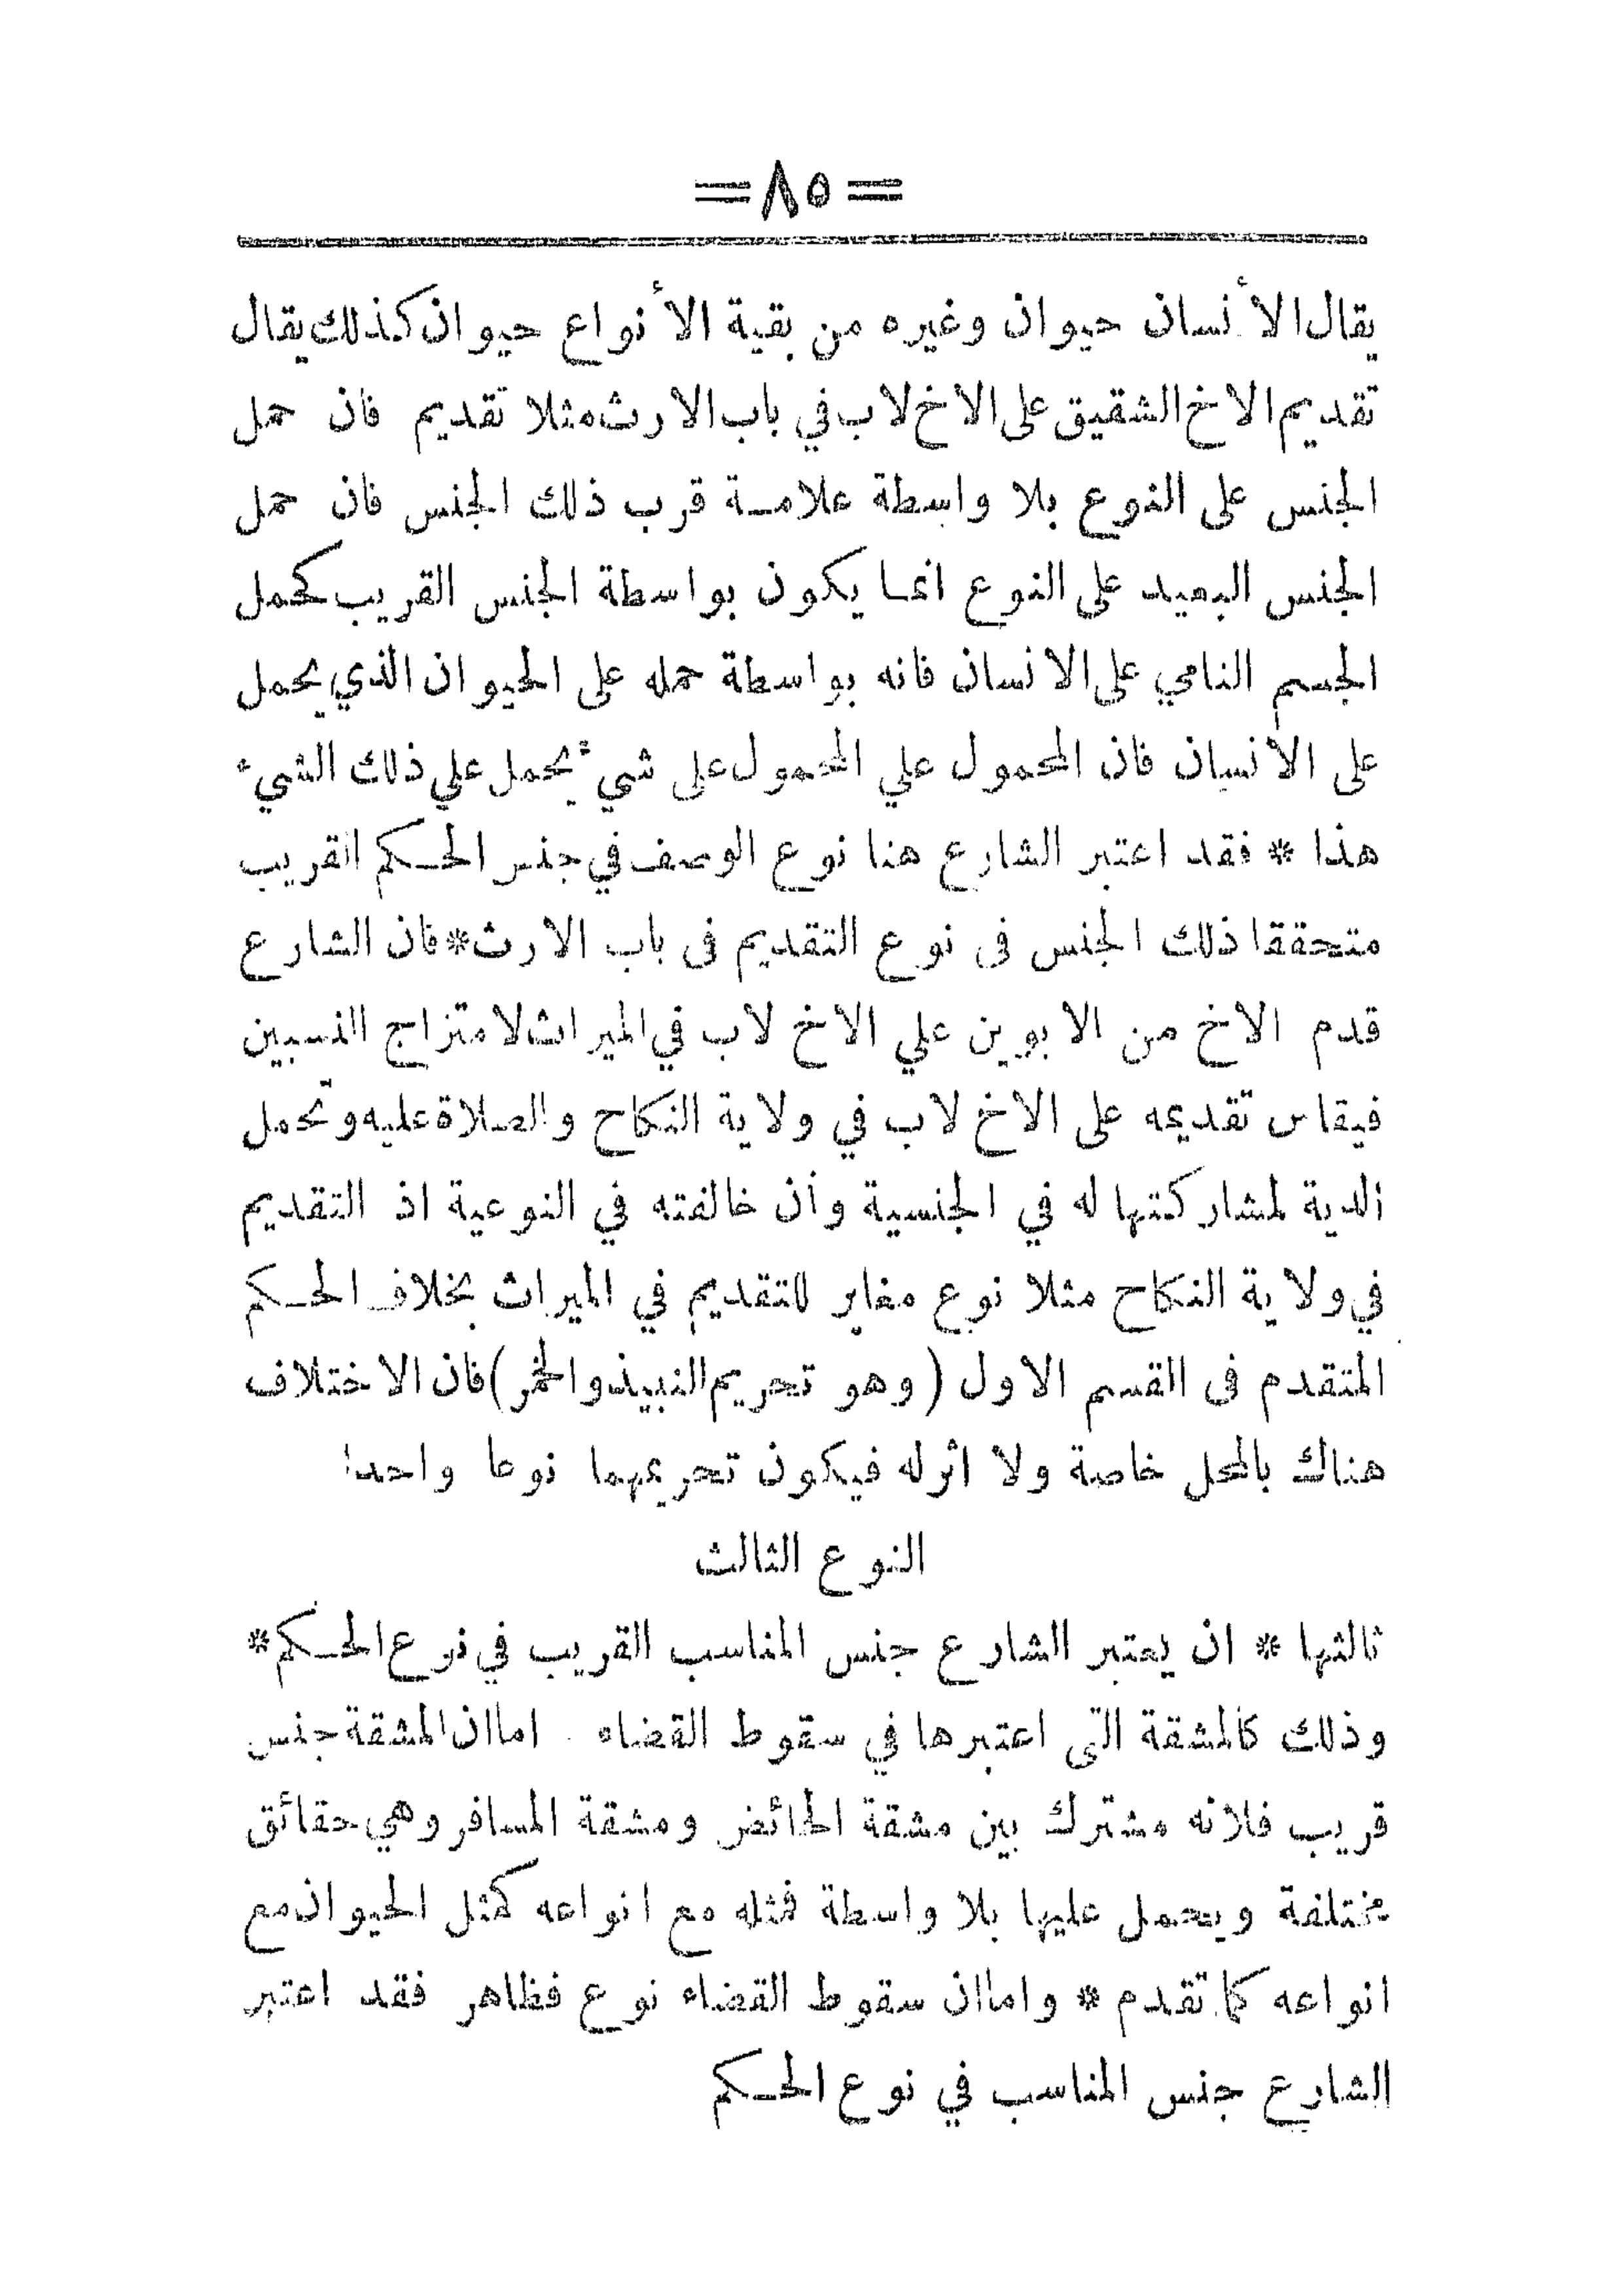 =٨٥=
يقال الأنسان حيوان وغيره من بقية الأنواع حيوان كذلك يقال
تقديم الاخ الشقيق على الاخ لاب في باب الارث مثلا تقديم فان حمل
الجنس على النوع بلا واسطة علامة قرب ذلك الجنس فان حمل
الجنس البعيد على النوع انما يكون بواسطة الجنس القريب كحمل
الجسم النامي على الانسان فانه بواسطة حمله على الحيوان الذي يحمل
على الانسان فان المحمول علي المحمول على شيء يحمل علي ذلك الشيء
هذا * فقد اعتبر الشارع هنا نوع الوصف في جنس الحكم القريب
متحققا ذلك الجنس فى نوع التقديم فى باب الارث * فان الشارع
قدم الاخ من الابوين علي الاخ لاب في الميراث لامتزاج النسبين
فيقاس تقديمه على الاخ لاب في ولاية النكاح والصلاة عليه وتحمل
الدية لمشاركتها له في الجنسية وأن خالفته في النوعية اذ التقديم
في ولاية النكاح مثلا نوع مغاير للتقديم في الميراث بخلاف الحكم
المتقدم فى القسم الاول (وهو تحريم النبيذ والخمر) فان الاختلاف
هناك بالمحل خاصة ولا اثر له فيكون تحريمهما نوعا واحدا
النوع الثالث
ثالثها * ان يعتبر الشارع جنس المناسب القريب في نوع الحكم *
وذلك كالمشقة التى اعتبرها في سقوط القضاء . اما ان المشقة جنس
قريب فلانه مشترك بين مشقة الحائض ومشقة المسافر وهي حقائق
مختلفة ويحمل عليها بلا واسطة فمثله مع انواعه كمثل الحيوان مع
انواعه كما تقدم * واما ان سقوط القضاء نوع فظاهر فقد اعتبر
الشارع جنس المناسب في نوع الحكم